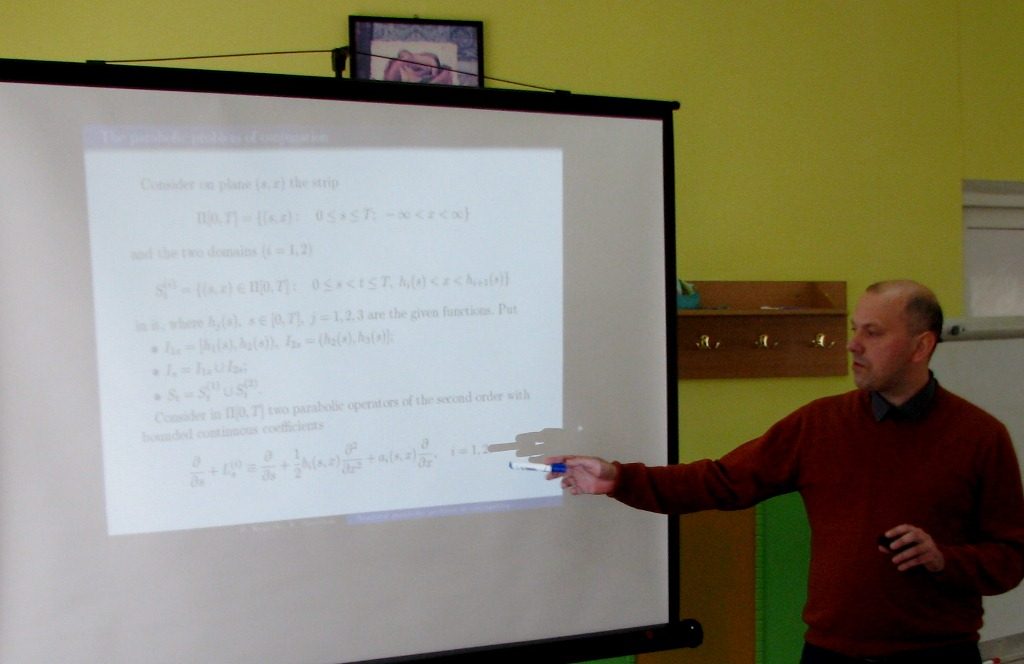 The parabolic problem of conjugation
Consider on plane (s, x) the strip
Π[0, T] = {(s, x) : 0 ≤ s ≤ T; −∞ < x < ∞}
and the two domains (i = 1, 2)
S_t^{(i)} = {(s, x) ∈ Π[0, T] : 0 ≤ s < t ≤ T, h_i(s) < x < h_{i+1}(s)}
in it, where h_j(s), s ∈ [0, T], j = 1, 2, 3 are the given functions. Put
• I_{1s} = [h_1(s), h_2(s)), I_{2s} = (h_2(s), h_3(s)];
• I_s = I_{1s} ∪ I_{2s};
• S_t = S_t^{(1)} ∪ S_t^{(2)}
Consider in Π[0, T] two parabolic operators of the second order with
bounded continuous coefficients
∂/∂s + L_s^{(i)} ≡ ∂/∂s + 1/2 b_i(s, x) ∂²/∂x² + a_i(s, x) ∂/∂x, i = 1, 2